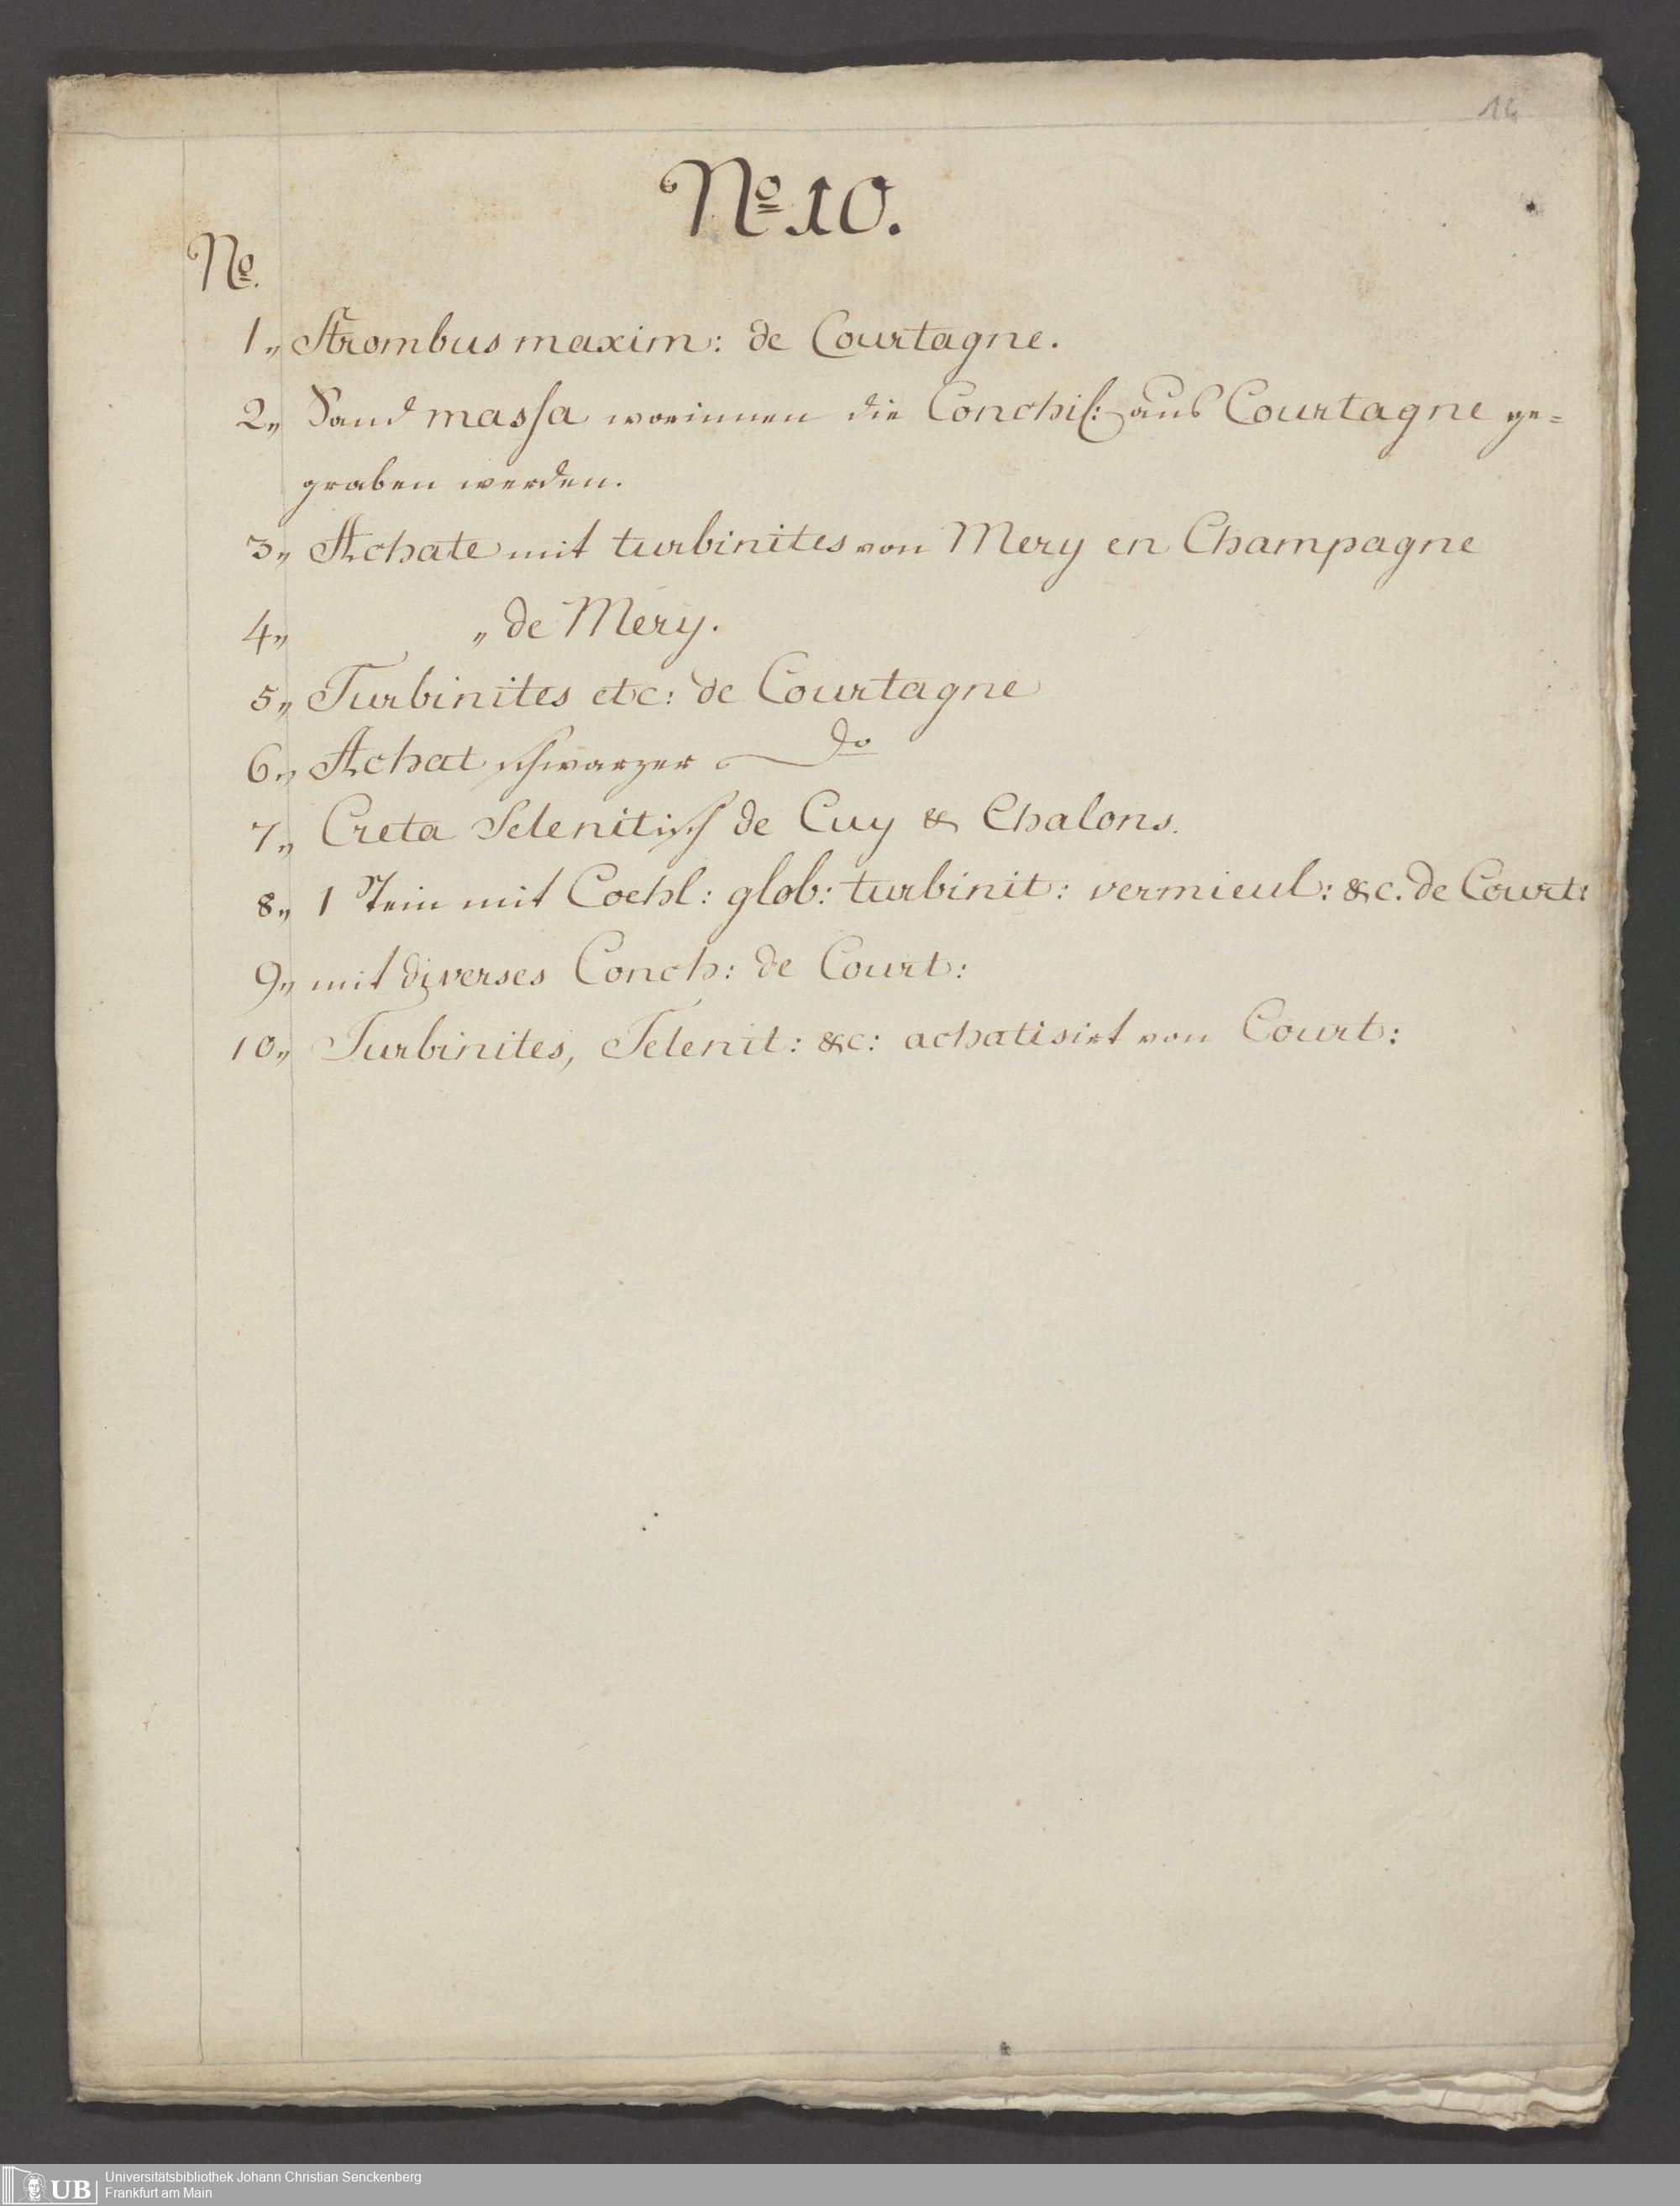 16
No 10.
No.
1„ Strombus maxim: de Courtagne.
2„ Sand massa worinnen die Conchil: aus Courtagne ge=
graben werden.
3„ Achate mit turbinites von Mery en Champagne
4„ „ de Mery.
5„ Turbinites etc: de Courtagne
6„ Achat schwarzer do
7„ Creta Selenitisch de Cuy & Chalons.
8„ 1 Stein mit Cochl: glob: turbinit: vermicul: &c. de Court:
9„ mit diverses Conch: de Court:
10„ Turbinites, Telenit: &c: achatisirt von Court:
UB
Universitätsbibliothek Johann Christian Senckenberg
Frankfurt am Main